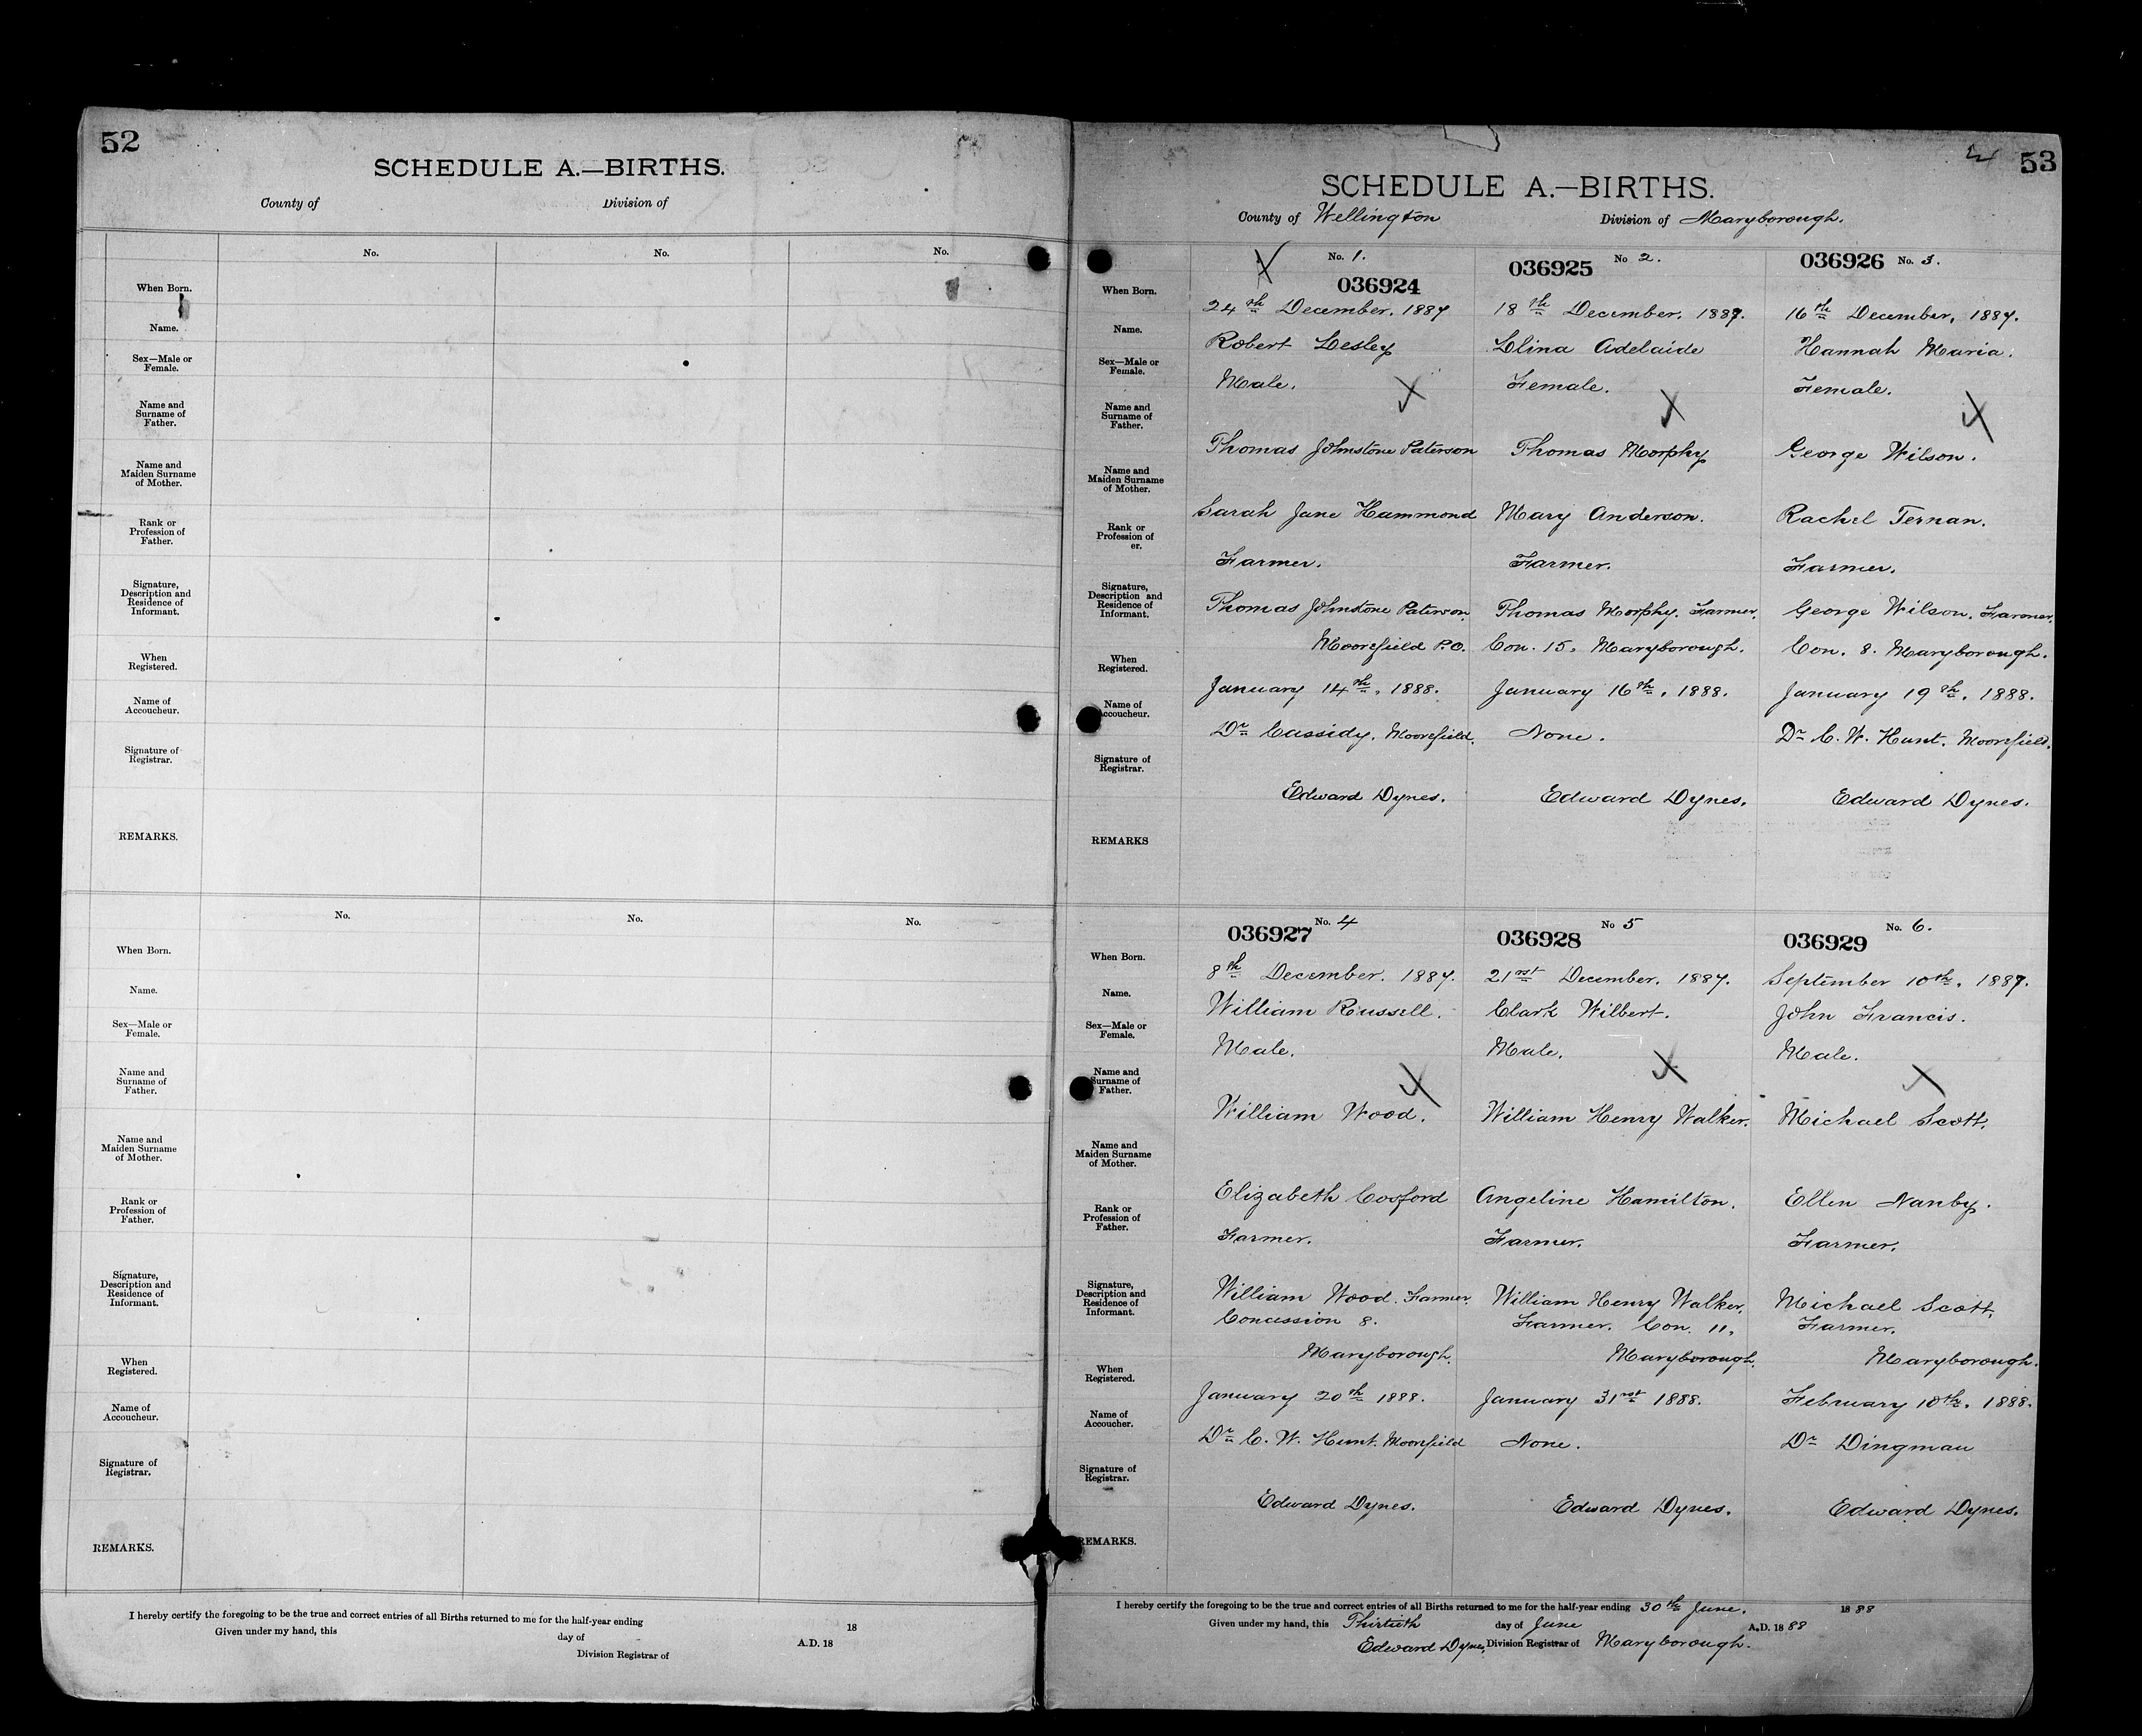 52
SCHEDULE A.—BIRTHS.
County of Division of
No. No. No.
When Born.
Name.
Sex—Male or
Female.
Name and
Surname of
Father.
Name and
Maiden Surname
of Mother.
Rank or
Profession of
Father.
Signature,
Description and
Residence of
Informant.
When
Registered.
Name of
Accoucheur.
Signature of
Registrar.
REMARKS.
No. No. No.
When Born.
Name.
Sex—Male or
Female.
Name and
Surname of
Father.
Name and
Maiden Surname
of Mother.
Rank or
Profession of
Father.
Signature,
Description and
Residence of
Informant.
When
Registered.
Name of
Accoucheur.
Signature of
Registrar.
REMARKS.
I hereby certify the foregoing to be the true and correct entries of all Births returned to me for the half-year ending 18
Given under my hand, this day of A.D. 18
Division Registrar of
53
SCHEDULE A.—BIRTHS.
County of Wellington Division of Maryborough.
No. 1. 036925 No 2. 036926 No. 3.
036924
When Born.
24th December. 1887 18th December. 1887. 16th December, 1887.
Name.
Robert Lesley Lina Adelaide Hannah Maria.
Sex—Male or
Female.
Male. Female. Female.
Name and
Surname of
Father.
Thomas Johnstone Paterson Thomas Morphy George Wilson.
Name and
Maiden Surname
of Mother.
Sarah Jane Hammond Mary Anderson. Rachel Ternan.
Rank or
Profession of
er.
Farmer. Farmer. Farmer.
Signature,
Description and
Residence of
Informant.
Thomas Johnstone Paterson, Thomas Morphy. Farmer, George Wilson. Farmer,
Moorefield P.O. Con. 15, Maryborough. Con. 8. Maryborough.
When
Registered.
January 14th, 1888. January 16th, 1888. January 19th, 1888.
Name of
ccoucheur.
Dr Cassidy. Moorefield. None. Dr C. W. Hunt. Moorefield.
Signature of
Registrar.
Edward Dynes. Edward Dynes. Edward Dynes.
REMARKS
036927 No. 4 036928 No 5 036929 No. 6.
When Born.
8th December. 1887. 21rst December. 1887. September 10th, 1887.
Name.
William Russell. Clark Wilbert. John Francis.
Sex—Male or
Female.
Male. Male. Male.
Name and
Surname of
Father.
William Wood. William Henry Walker. Michael Scott.
Name and
Maiden Surname
of Mother.
Elizabeth Cosford Angeline Hamilton. Ellen Nanby.
Rank or
Profession of
Father.
Farmer. Farmer. Farmer.
Signature,
Description and
Residence of
Informant.
William Wood. Farmer. William Henry Walker, Michael Scott,
Concession 8. Farmer. Con. 11, Farmer.
Maryborough. Maryborough. Maryborough.
When
Registered.
January 20th 1888. January 31rst 1888. February 10th, 1888.
Name of
Accoucher.
Dr C. W. Hunt. Moorefield None. Dr Dingman
Signature of
Registrar.
Edward Dynes. Edward Dynes. Edward Dynes.
EMARKS.
I hereby certify the foregoing to be the true and correct entries of all Births returned to me for the half-year ending 30th June. 1888
Given under my hand, this Thirtieth day of June A.D. 1888
Edward Dynes, Division Registrar of Maryborough.